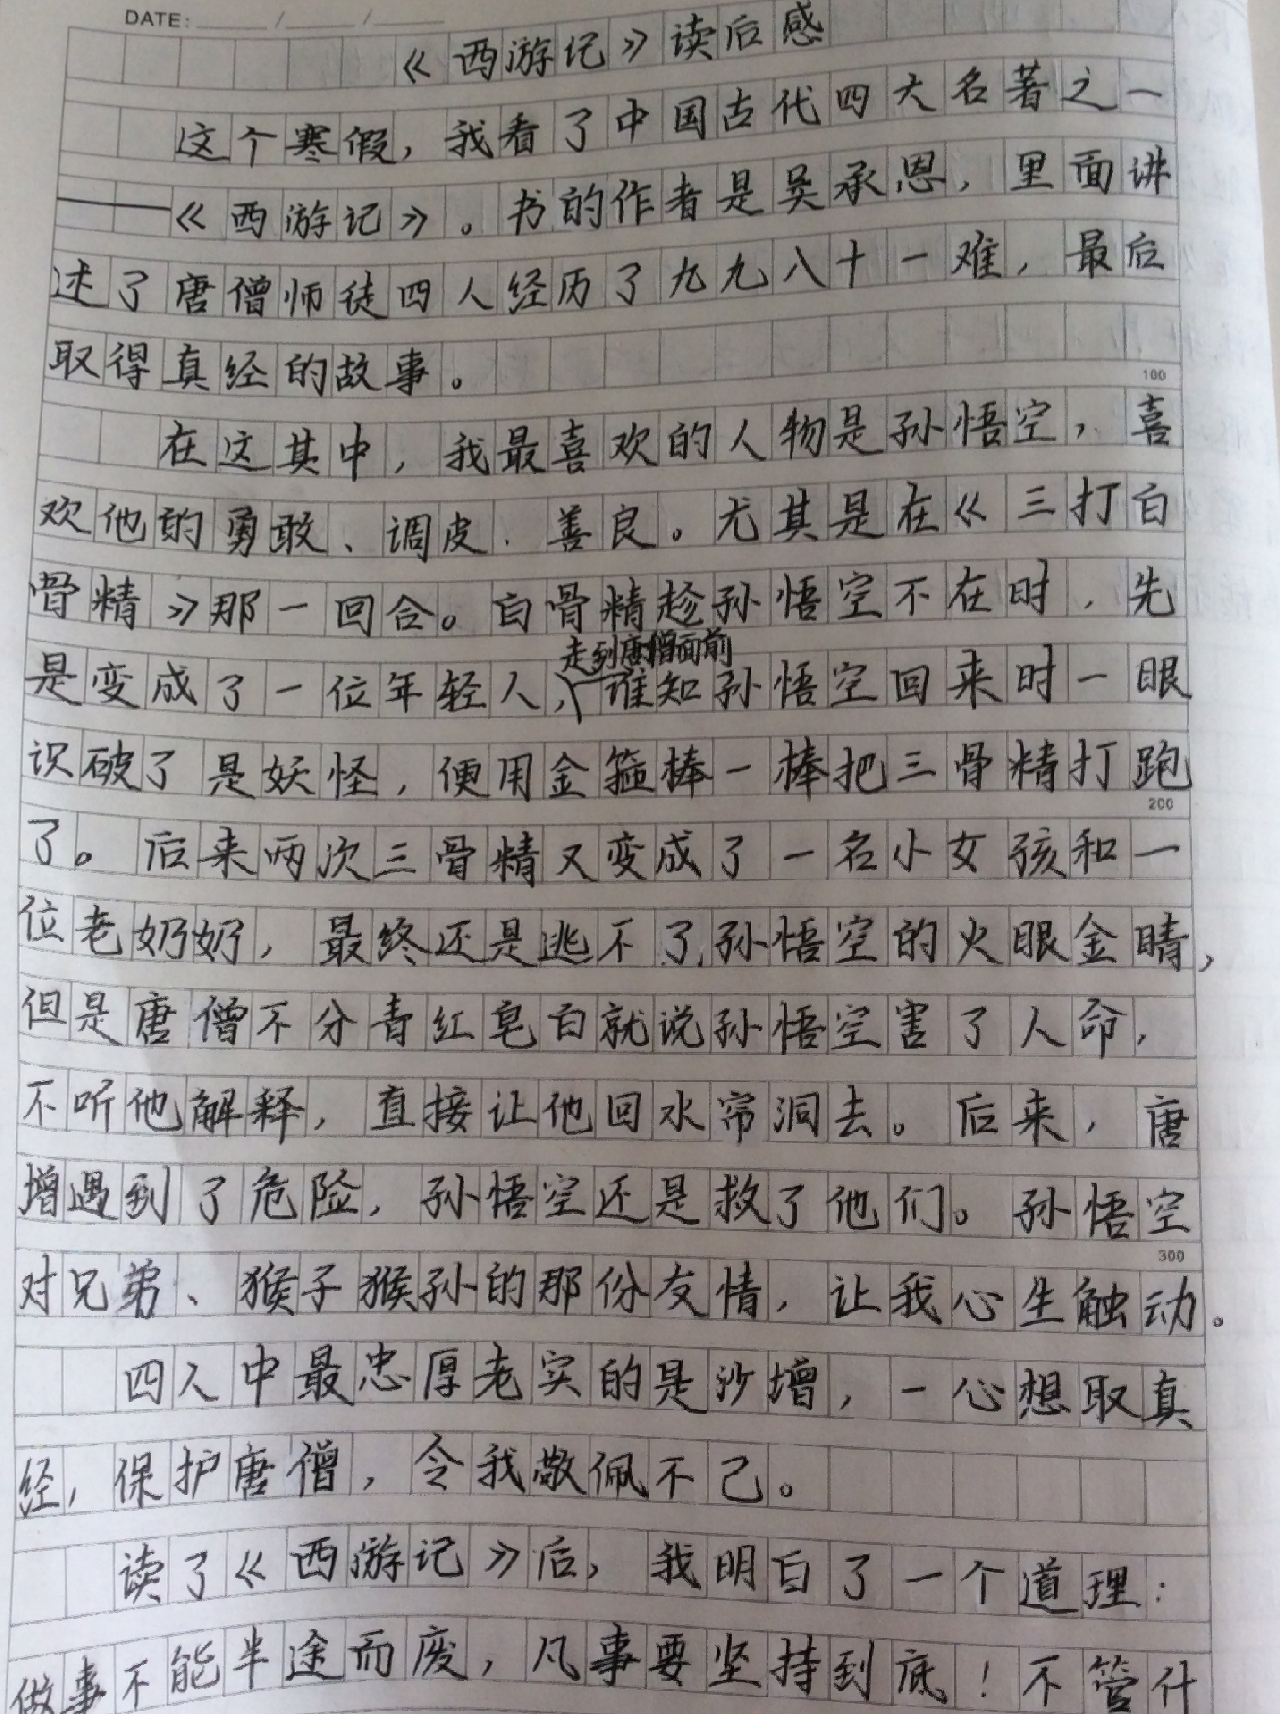 DATE: / /
《西游记》读后感
这个寒假，我看了中国古代四大名著之一
——《西游记》。书的作者是吴承恩，里面讲
述了唐僧师徒四人经历了九九八十一难，最后
取得真经的故事。
100
在这其中，我最喜欢的人物是孙悟空，喜
欢他的勇敢、调皮、善良。尤其是在《三打白
骨精》那一回合。白骨精趁孙悟空不在时，先
走到唐僧面前
是变成了一位年轻人，谁知孙悟空回来时一眼
识破了是妖怪，便用金箍棒一棒把三骨精打跑
200
了。后来两次三骨精又变成了一名小女孩和一
位老奶奶，最终还是逃不了孙悟空的火眼金睛，
但是唐僧不分青红皂白就说孙悟空害了人命，
不听他解释，直接让他回水帘洞去。后来，唐
增遇到了危险，孙悟空还是救了他们。孙悟空
300
对兄弟、猴子猴孙的那份友情，让我心生触动。
四人中最忠厚老实的是沙增，一心想取真
经，保护唐僧，令我敬佩不己。
读了《西游记》后，我明白了一个道理：
做事不能半途而废，凡事要坚持到底！不管什